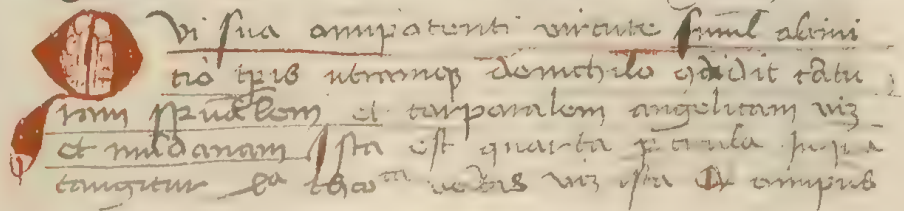 Qui sua omnipotenti virtute simul ab ini
tio tp̄is utramq; de nichilo 9didit c̄atu
ram spūalem et corporalem angelicam viz
et mūdanam Ista est quarta p̄ticula in q̄
tangitur viz ista omnip̄us